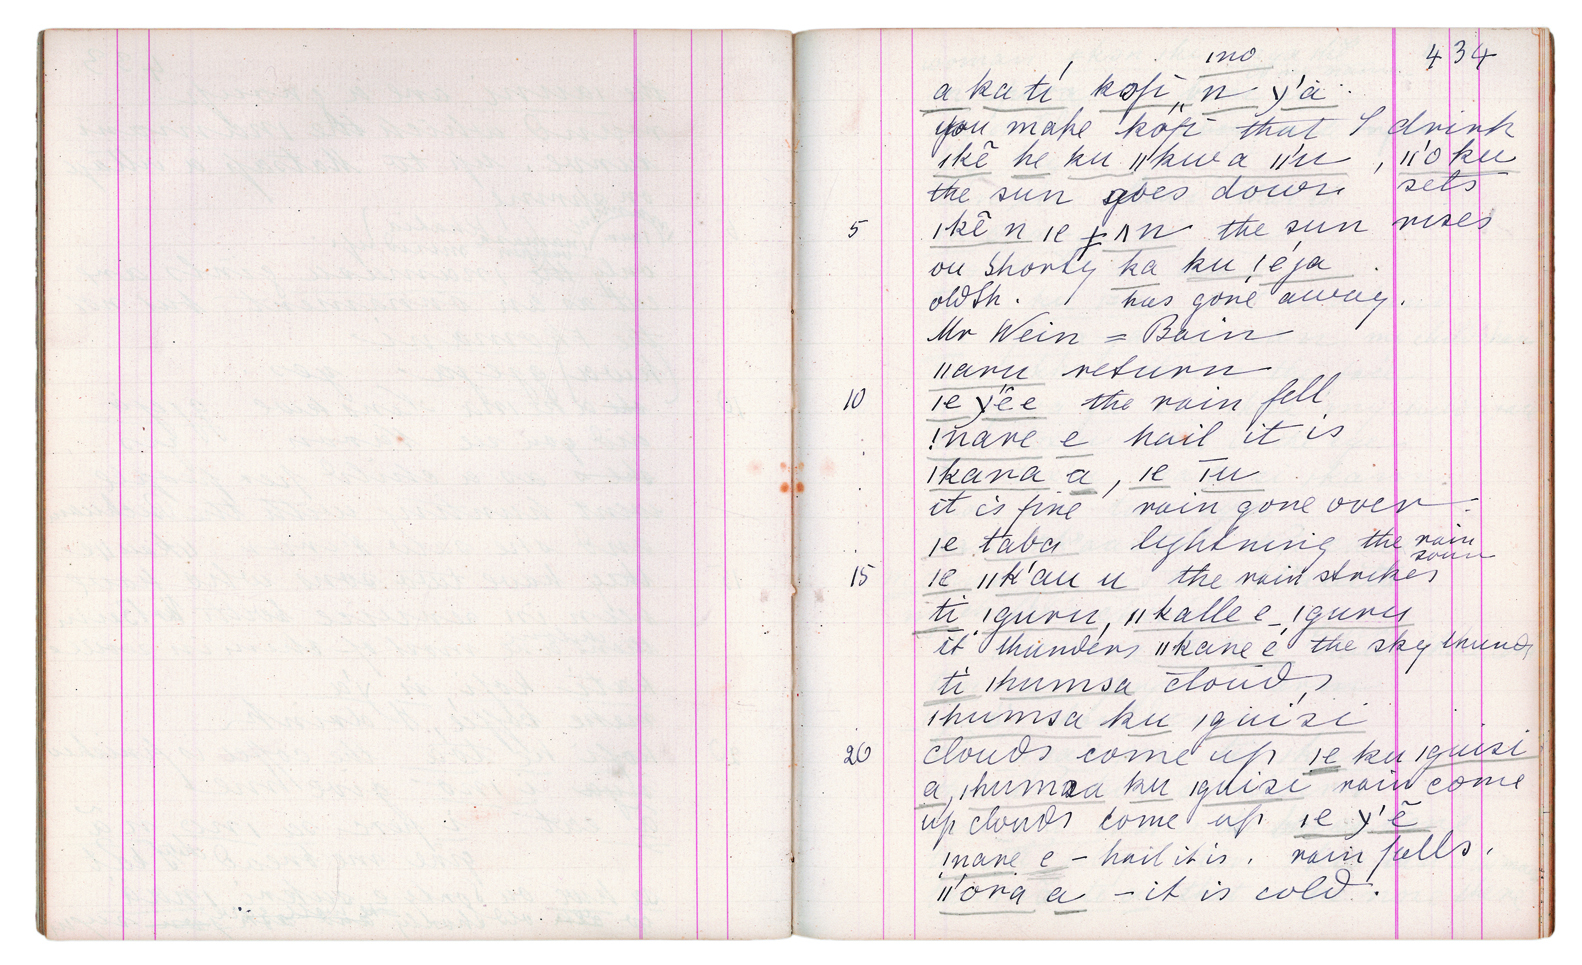 434
ıno
a ka ti kofi „ n y'a
you make kofi that I drink
ıkẽ he ku ıı'kwa ıı'u , ıı'o ku
the sun goes down sets
5 ıkẽ n ıe ǂʌn the sun rises
ou Shorty ka ku !eja .
old Sh. has gone away.
Mr Wein = Bain
ııaru return
10 ıe y'ẽe the rain fell
!nare e hail it is
ıkara a , ıe ıu
it is fine rain gone over .
ıe taba lightning the rain
15 ıe ıık'au u the rain strikes
ti ıguru, ııkalle e _ ıguru
it thunders ııkane e the sky thunds
ti ıhumsa clouds
ıhumsa ku ıguisi
20 clouds come up ıe ku ıguisi
a, ıhumsa ku ıguisi rain come
up clouds come up ıe y'ẽ
!nare e – hail it is . rain falls .
ıı'ora a – it is cold .